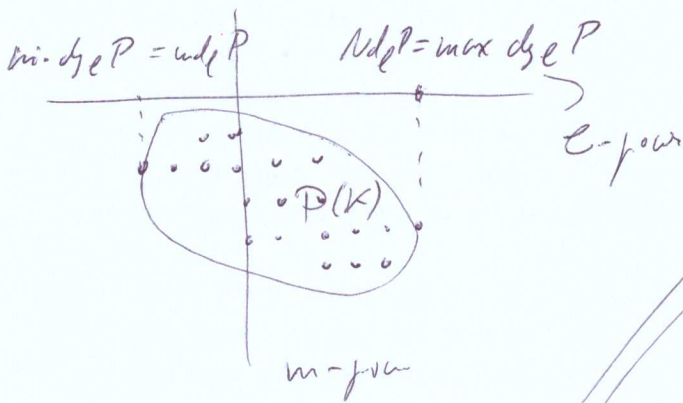 min deg_ℓ P = md_ℓ P
Md_ℓ P = max deg_ℓ P
ℓ-power
P(K)
m-power